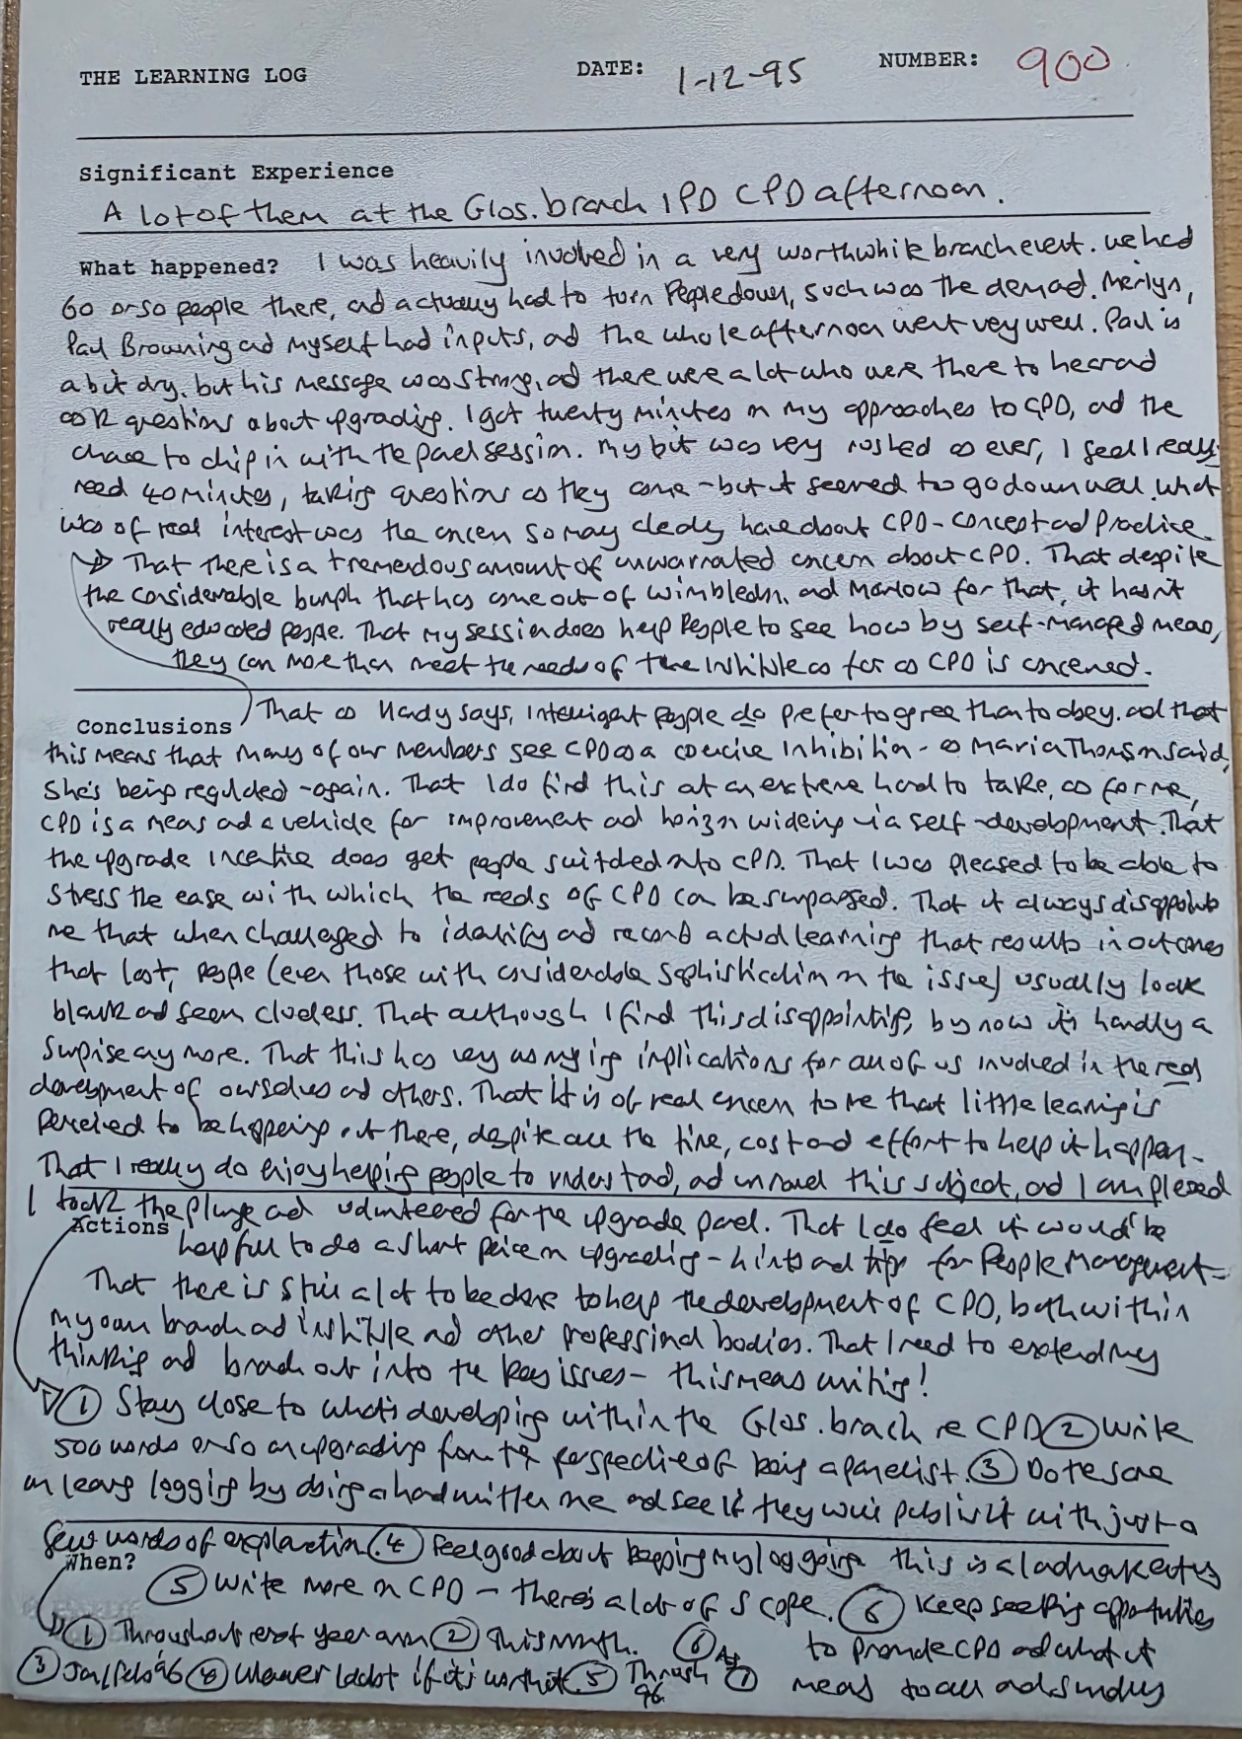 THE LEARNING LOG DATE: 1-12-95 NUMBER: 900
Significant Experience
A lot of them at the Glos. branch IPD CPD afternoon.
What happened? I was heavily involved in a very worthwhile branch event. We had
60 or so people there, and actually had to turn people down, such was the demand. Merlyn,
Paul Browning and myself had inputs, and the whole afternoon went very well. Paul is
a bit dry, but his message was strong, and there were a lot who were there to hear and
ask questions about upgrading. I got twenty minutes on my approaches to CPD, and the
chance to chip in with the panel session. My bit was very rushed as ever, I feel I really
need 40 minutes, taking questions as they come - but it seemed to go down well. What
was of real interest was the concern so many clearly have about CPD - concept and practice.
→ That there is a tremendous amount of unwarranted concern about CPD. That despite
the considerable bumph that has come out of Wimbledon, and Marlow for that, it hasn't
really educated people. That my session does help people to see how by self-managed means,
they can more than meet the needs of the Institute as far as CPD is concerned.
Conclusions That as Handy says, intelligent people do prefer to agree than to obey. and that
this means that many of our members see CPD as a coercive inhibition - as Maria Thomson said,
she's being regulated - again. That I do find this at an extreme hard to take, as for me,
CPD is a means and a vehicle for improvement and horizon widening via self-development. That
the upgrade incentive does get people suitded into CPD. That I was pleased to be able to
stress the ease with which the needs of CPD can be surpassed. That it always disappoints
me that when challenged to identify and record actual learning that results in outcomes
that last, people (even those with considerable sophistication on the issue) usually look
blank and seem clueless. That although I find this disappointing, by now it's hardly a
surprise any more. That this has very worrying implications for all of us involved in the real
development of ourselves and others. That it is of real concern to me that little learning is
perceived to be happening out there, despite all the time, cost and effort to help it happen.
That I really do enjoy helping people to understand, and unravel this subject, and I am pleased
I took the plunge and volunteered for the upgrade panel. That I do feel it would be
Actions helpful to do a short piece on upgrading - hints and tips for People Management -
That there is still a lot to be done to help the development of CPD, both within
my own branch and institute and other professional bodies. That I need to extend my
thinking and branch out into the key issues - this means writing!
① Stay close to what's developing within the Glos. branch re CPD ② Write
500 words or so on upgrading from the perspective of being a panelist. ③ Do the same
on learning logging by doing a handwritten one and see if they will publish it with just a
few words of explanation. ④ Feel good about keeping my logging this is a landmark entry
When? ⑤ Write more on CPD - there's a lot of scope. ⑥ Keep seeking opportunities
to promote CPD and what it
means to all and sundry
① Throughout rest of year and ② This month. ⑥
③ Jan/Feb 96 ④ Whenever I doubt if it's worth it ⑤ Through
96